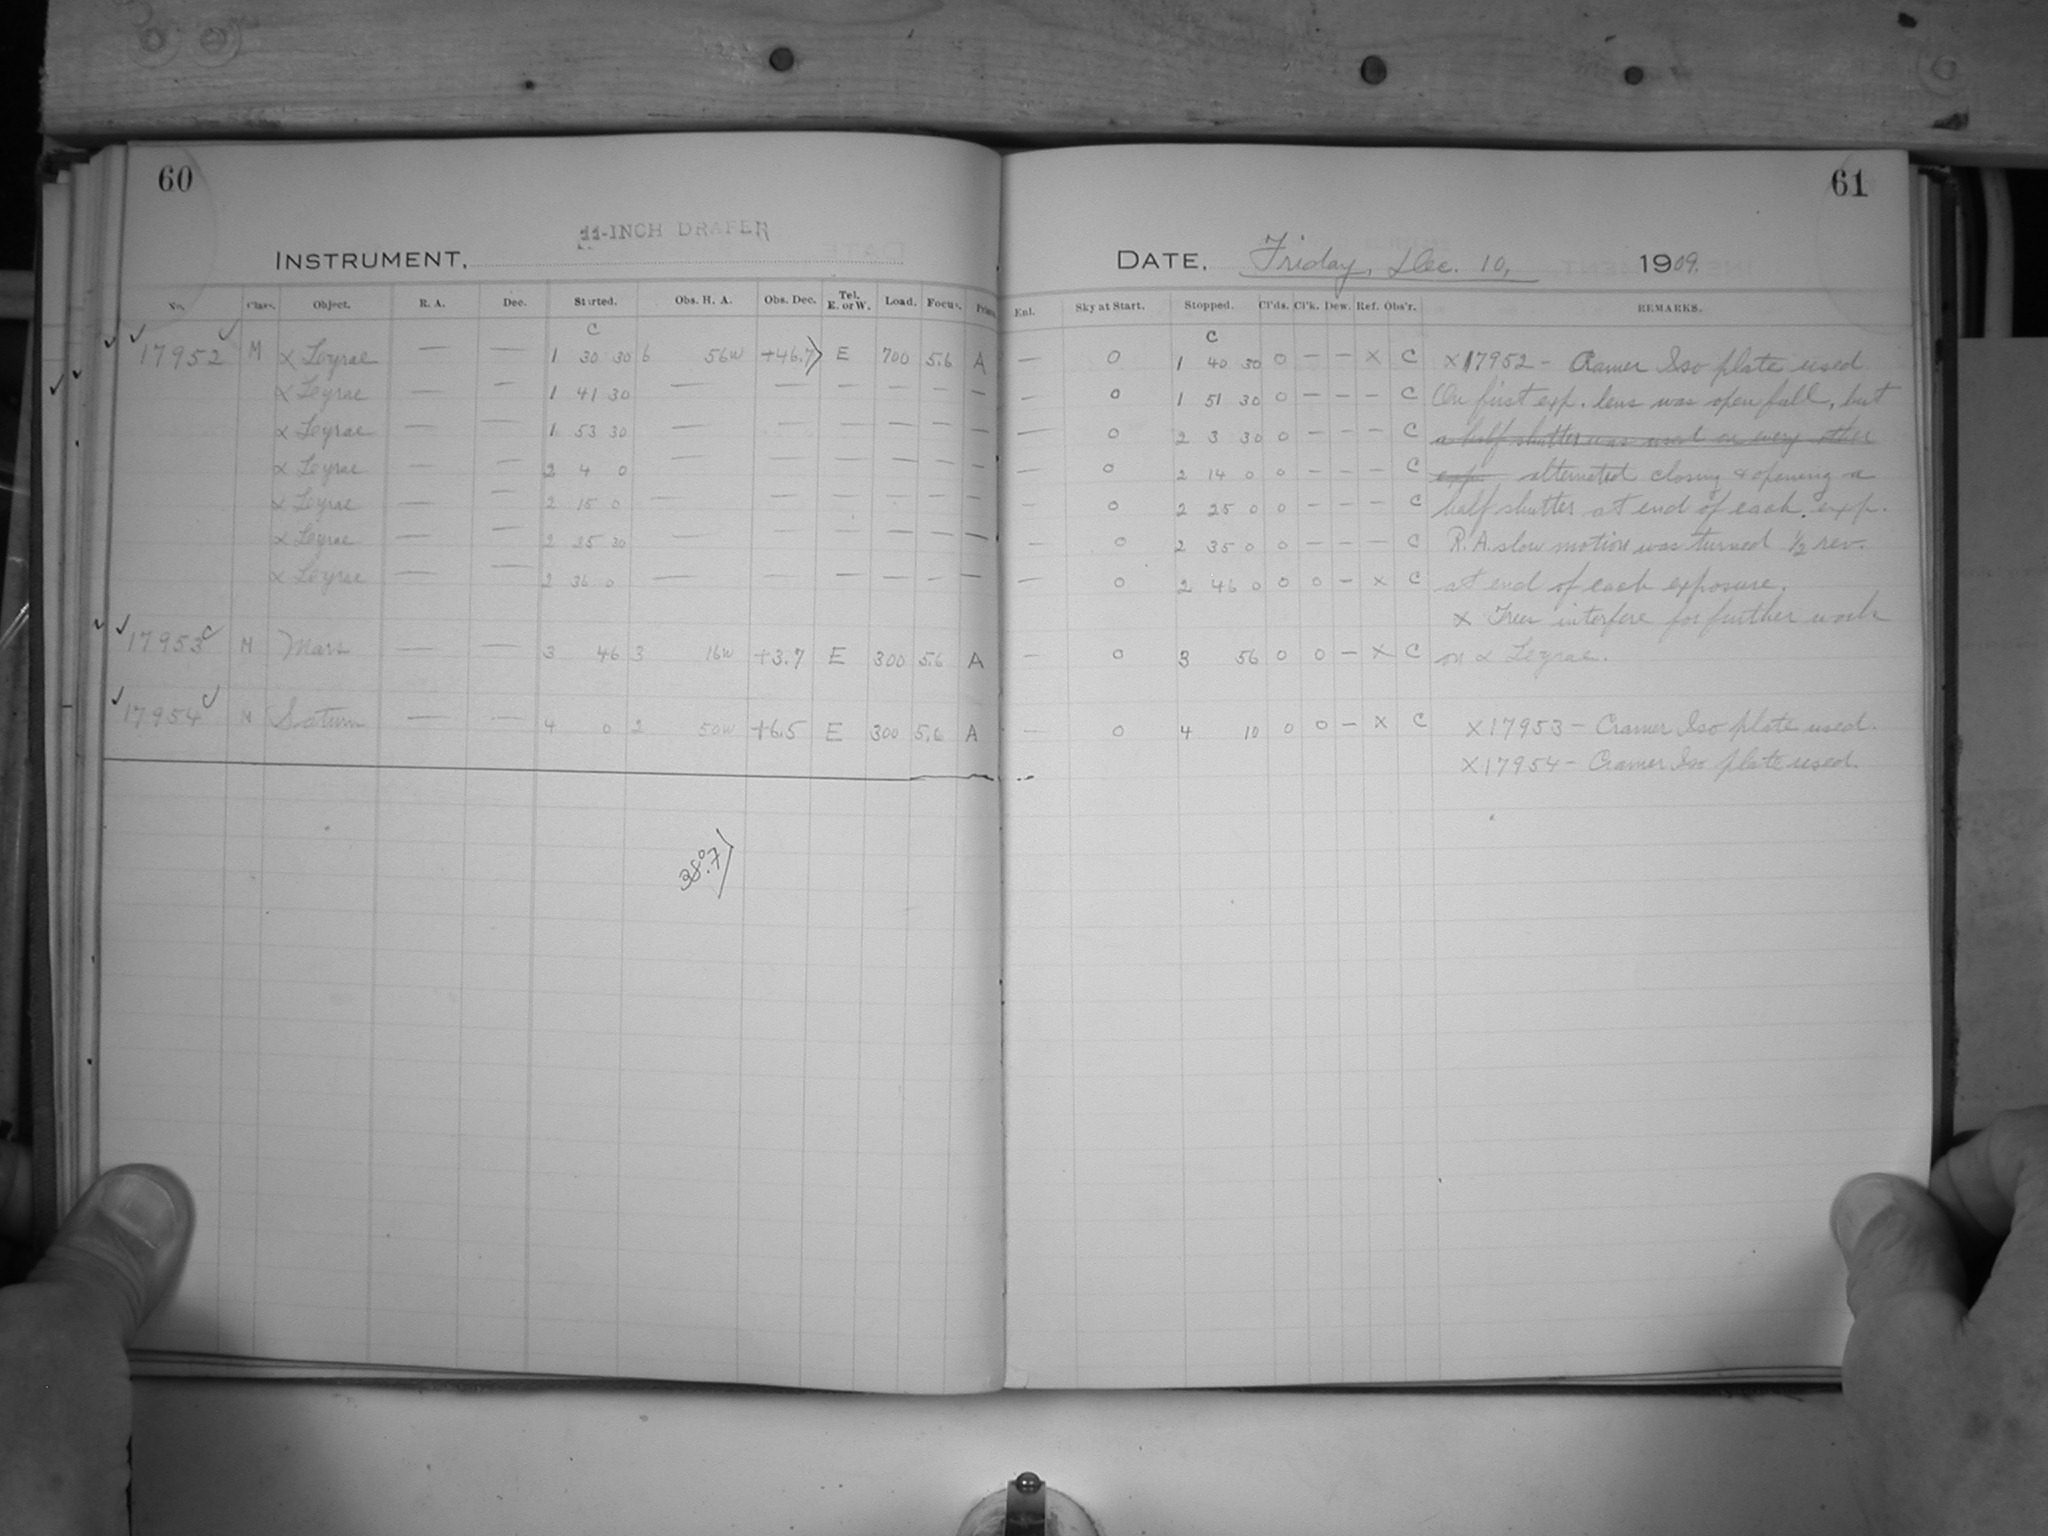 60
11-INCH DRAPER
INSTRUMENT.
No. Class. Object. R. A. Dec. Started. Obs. H. A. Obs. Dec. Tel. E. or W. Load. Focus. Prism.
C
17952 M α Leyrae — — 1 30 30 6 56W +46.7) E 700 5.6 A
α Leyrae — — 1 41 30 — — — — — —
α Leyrae — — 1 53 30 — — — — — —
α Leyrae — — 2 4 0 — — — — — —
α Leyrae — — 2 15 0 — — — — — —
α Leyrae — — 2 25 30 — — — — — —
α Leyrae — — 2 36 0 — — — — — —
17953 M Mars — — 3 46 3 16W +3.7 E 300 5.6 A
17954 M Saturn — — 4 0 2 50W +6.5 E 300 5.6 A
38°.7)
61
DATE. Friday, Dec. 10, 1909.
Enl. Sky at Start. Stopped. Cl'ds. Cl'k. Dew. Ref. Obs'r. REMARKS.
C
— 0 1 40 30 0 — — X C X 17952 - Cramer Iso plate used
— 0 1 51 30 0 — — — C On first exp. lens was open full, but
— 0 2 3 30 0 — — — C a half shutter was used on every other
— 0 2 14 0 0 — — — C exp. alternated closing & opening a
— 0 2 25 0 0 — — — C half shutter at end of each exp.
— 0 2 35 0 0 — — — C R. A. slow motion was turned 1/2 rev.
— 0 2 46 0 0 0 — X C at end of each exposure.
X Trees interfere for further work
— 0 3 56 0 0 — X C on α Leyrae.
— 0 4 10 0 0 — X C X 17953 - Cramer Iso plate used.
X 17954 - Cramer Iso plate used.